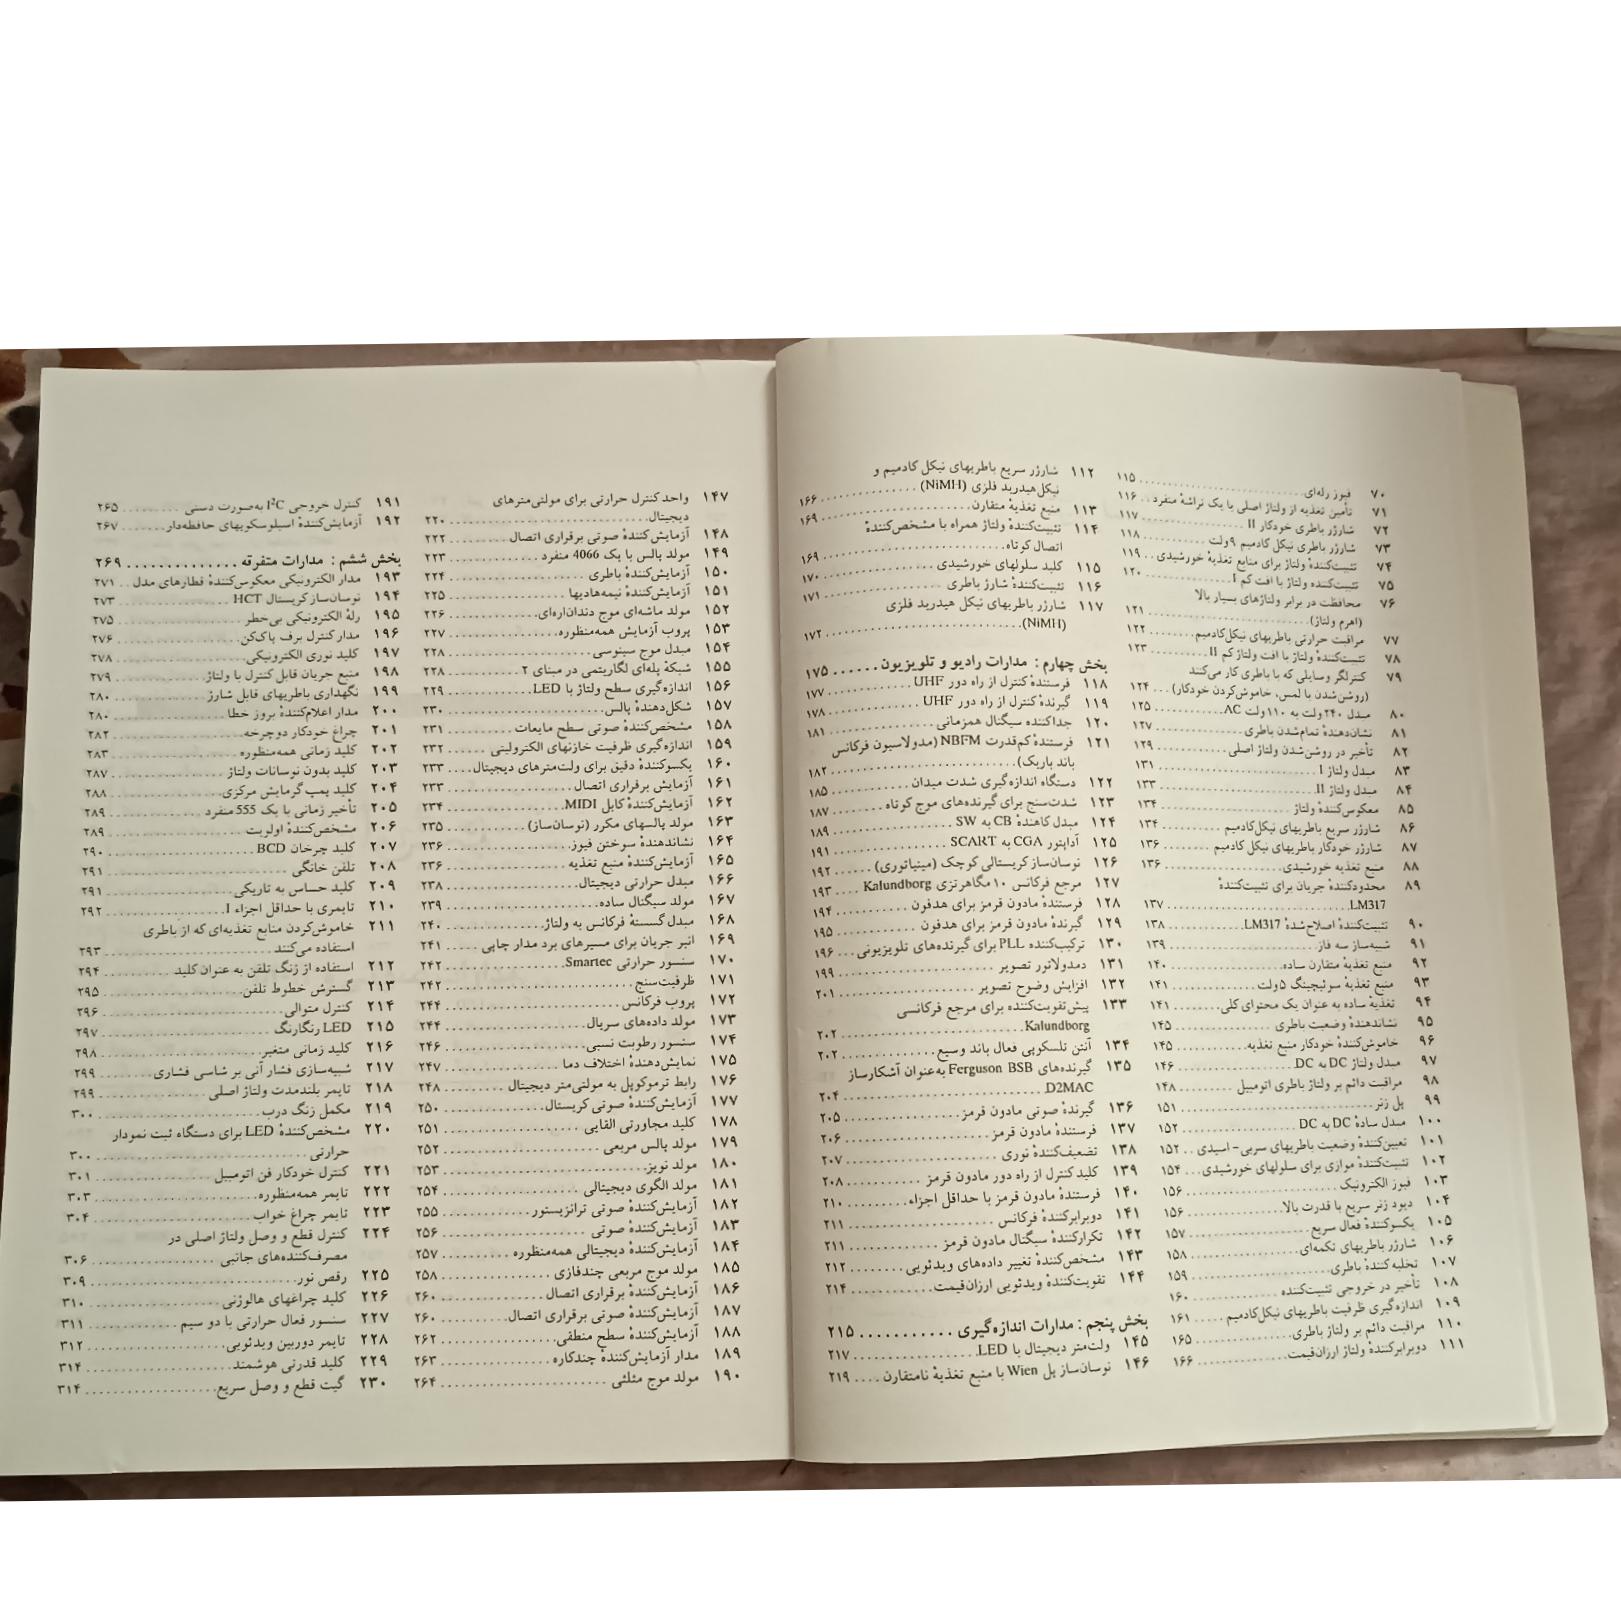 ۷۰ فیوز رله‌ای ........ ۱۱۵
۷۱ تأمین تغذیه از ولتاژ اصلی با یک تراشهٔ منفرد .. ۱۱۶
۷۲ شارژر باطری خودکار II ........ ۱۱۷
۷۳ شارژر باطری نیکل کادمیم ۹ ولت ........ ۱۱۸
۷۴ تثبیت‌کنندهٔ ولتاژ برای منابع تغذیهٔ خورشیدی .. ۱۱۹
۷۵ تثبیت‌کننده ولتاژ با افت کم I ........ ۱۲۰
۷۶ محافظت در برابر ولتاژهای بسیار بالا
(اهرم ولتاژ) ........ ۱۲۱
۷۷ مراقبت حرارتی باطریهای نیکل‌کادمیم ........ ۱۲۲
۷۸ تثبیت‌کنندهٔ ولتاژ با افت ولتاژ کم II ........ ۱۲۳
۷۹ کنترلگر وسایلی که با باطری کار می‌کنند
(روشن‌شدن با لمس، خاموش‌کردن خودکار) ... ۱۲۴
۸۰ مبدل ۲۴۰ ولت به ۱۱۰ ولت AC ........ ۱۲۵
۸۱ نشان‌دهندهٔ تمام‌شدن باطری ........ ۱۲۷
۸۲ تأخیر در روشن‌شدن ولتاژ اصلی ........ ۱۲۹
۸۳ مبدل ولتاژ I ........ ۱۳۱
۸۴ مبدل ولتاژ II ........ ۱۳۳
۸۵ معکوس‌کنندهٔ ولتاژ ........ ۱۳۴
۸۶ شارژر سریع باطریهای نیکل‌کادمیم ........ ۱۳۴
۸۷ شارژر خودکار باطریهای نیکل کادمیم ........ ۱۳۶
۸۸ منبع تغذیه خورشیدی ........ ۱۳۶
۸۹ محدودکنندهٔ جریان برای تثبیت‌کنندهٔ
LM317 ........ ۱۳۷
۹۰ تثبیت‌کنندهٔ اصلاح‌شدهٔ LM317 ........ ۱۳۸
۹۱ شبیه‌ساز سه فاز ........ ۱۳۹
۹۲ منبع تغذیهٔ متقارن ساده ........ ۱۴۰
۹۳ منبع تغذیهٔ سوئیچینگ ۵ ولت ........ ۱۴۱
۹۴ تغذیهٔ ساده به عنوان یک محتوای کلی ........ ۱۴۱
۹۵ نشاندهندهٔ وضعیت باطری ........ ۱۴۵
۹۶ خاموش‌کنندهٔ خودکار منبع تغذیه ........ ۱۴۵
۹۷ مبدل ولتاژ DC به DC ........ ۱۴۶
۹۸ مراقبت دائم بر ولتاژ باطری اتومبیل ........ ۱۴۸
۹۹ پل زنر ........ ۱۵۱
۱۰۰ مبدل سادهٔ DC به DC ........ ۱۵۲
۱۰۱ تعیین‌کنندهٔ وضعیت باطریهای سربی-اسیدی .. ۱۵۲
۱۰۲ تثبیت‌کنندهٔ موازی برای سلولهای خورشیدی .... ۱۵۴
۱۰۳ فیوز الکترونیک ........ ۱۵۶
۱۰۴ دیود زنر سریع با قدرت بالا ........ ۱۵۶
۱۰۵ یکسوکنندهٔ فعال سریع ........ ۱۵۷
۱۰۶ شارژر باطریهای تکمه‌ای ........ ۱۵۸
۱۰۷ تخلیه‌کنندهٔ باطری ........ ۱۵۹
۱۰۸ تأخیر در خروجی تثبیت‌کننده ........ ۱۶۰
۱۰۹ اندازه‌گیری ظرفیت باطریهای نیکل‌کادمیم ..... ۱۶۱
۱۱۰ مراقبت دائم بر ولتاژ باطری ........ ۱۶۵
۱۱۱ دوبرابرکنندهٔ ولتاژ ارزان‌قیمت ........ ۱۶۶
۱۱۲ شارژر سریع باطریهای نیکل کادمیم و
نیکل‌هیدرید فلزی (NiMH) ........ ۱۶۶
۱۱۳ منبع تغذیهٔ متقارن ........ ۱۶۹
۱۱۴ تثبیت‌کنندهٔ ولتاژ همراه با مشخص‌کنندهٔ
اتصال کوتاه ........ ۱۶۹
۱۱۵ کلید سلولهای خورشیدی ........ ۱۷۰
۱۱۶ تثبیت‌کنندهٔ شارژ باطری ........ ۱۷۱
۱۱۷ شارژر باطریهای نیکل هیدرید فلزی
(NiMH) ........ ۱۷۲
بخش چهارم : مدارات رادیو و تلویزیون ..... ۱۷۵
۱۱۸ فرستندهٔ کنترل از راه دور UHF ........ ۱۷۷
۱۱۹ گیرندهٔ کنترل از راه دور UHF ........ ۱۷۸
۱۲۰ جداکننده سیگنال همزمانی ........ ۱۸۱
۱۲۱ فرستندهٔ کم‌قدرت NBFM (مدولاسیون فرکانس
باند باریک) ........ ۱۸۲
۱۲۲ دستگاه اندازه‌گیری شدت میدان ........ ۱۸۵
۱۲۳ شدت‌سنج برای گیرنده‌های موج کوتاه ........ ۱۸۷
۱۲۴ مبدل کاهندهٔ CB به SW ........ ۱۸۹
۱۲۵ آداپتور CGA به SCART ........ ۱۹۱
۱۲۶ نوسان‌ساز کریستالی کوچک (مینیاتوری) ..... ۱۹۲
۱۲۷ مرجع فرکانس ۱۰ مگاهرتزی Kalundborg .... ۱۹۳
۱۲۸ فرستندهٔ مادون قرمز برای هدفون ........ ۱۹۴
۱۲۹ گیرندهٔ مادون قرمز برای هدفون ........ ۱۹۵
۱۳۰ ترکیب‌کنندهٔ PLL برای گیرنده‌های تلویزیونی .... ۱۹۶
۱۳۱ دمدولاتور تصویر ........ ۱۹۹
۱۳۲ افزایش وضوح تصویر ........ ۲۰۱
۱۳۳ پیش‌تقویت‌کننده برای مرجع فرکانسی
Kalundborg ........ ۲۰۲
۱۳۴ آنتن تلسکوپی فعال باند وسیع ........ ۲۰۲
۱۳۵ گیرنده‌های Ferguson BSB به‌عنوان آشکارساز
D2MAC ........ ۲۰۴
۱۳۶ گیرندهٔ صوتی مادون قرمز ........ ۲۰۵
۱۳۷ فرستندهٔ مادون قرمز ........ ۲۰۶
۱۳۸ تضعیف‌کنندهٔ نوری ........ ۲۰۷
۱۳۹ کلید کنترل از راه دور مادون قرمز ........ ۲۰۸
۱۴۰ فرستندهٔ مادون قرمز با حداقل اجزاء ........ ۲۱۰
۱۴۱ دوبرابرکنندهٔ فرکانس ........ ۲۱۱
۱۴۲ تکرارکنندهٔ سیگنال مادون قرمز ........ ۲۱۱
۱۴۳ مشخص‌کنندهٔ تغییر داده‌های ویدئویی ........ ۲۱۲
۱۴۴ تقویت‌کنندهٔ ویدئویی ارزان‌قیمت ........ ۲۱۴
بخش پنجم : مدارات اندازه‌گیری ........... ۲۱۵
۱۴۵ ولت‌متر دیجیتال با LED ........ ۲۱۷
۱۴۶ نوسان‌ساز پل Wien با منبع تغذیهٔ نامتقارن .... ۲۱۹
۱۴۷ واحد کنترل حرارتی برای مولتی‌مترهای
دیجیتال ........ ۲۲۰
۱۴۸ آزمایش‌کنندهٔ صوتی برقراری اتصال ........ ۲۲۲
۱۴۹ مولد پالس با یک 4066 منفرد ........ ۲۲۳
۱۵۰ آزمایش‌کنندهٔ باطری ........ ۲۲۴
۱۵۱ آزمایش‌کنندهٔ نیمه‌هادیها ........ ۲۲۵
۱۵۲ مولد ماشه‌ای موج دندان‌اره‌ای ........ ۲۲۶
۱۵۳ پروب آزمایش همه‌منظوره ........ ۲۲۷
۱۵۴ مبدل موج سینوسی ........ ۲۲۸
۱۵۵ شبکهٔ پله‌ای لگاریتمی در مبنای ۲ ........ ۲۲۸
۱۵۶ اندازه‌گیری سطح ولتاژ با LED ........ ۲۲۹
۱۵۷ شکل‌دهندهٔ پالس ........ ۲۳۰
۱۵۸ مشخص‌کنندهٔ صوتی سطح مایعات ........ ۲۳۱
۱۵۹ اندازه‌گیری ظرفیت خازنهای الکترولیتی ...... ۲۳۲
۱۶۰ یکسوکنندهٔ دقیق برای ولت‌مترهای دیجیتال .... ۲۳۳
۱۶۱ آزمایش برقراری اتصال ........ ۲۳۳
۱۶۲ آزمایش‌کنندهٔ کابل MIDI ........ ۲۳۴
۱۶۳ مولد پالسهای مکرر (نوسان‌ساز) ........ ۲۳۵
۱۶۴ نشاندهندهٔ سوختن فیوز ........ ۲۳۶
۱۶۵ آزمایش‌کنندهٔ منبع تغذیه ........ ۲۳۶
۱۶۶ مبدل حرارتی دیجیتال ........ ۲۳۸
۱۶۷ مولد سیگنال ساده ........ ۲۳۹
۱۶۸ مبدل گسستهٔ فرکانس به ولتاژ ........ ۲۴۰
۱۶۹ انبر جریان برای مسیرهای برد مدار چاپی ..... ۲۴۱
۱۷۰ سنسور حرارتی Smartec ........ ۲۴۲
۱۷۱ ظرفیت‌سنج ........ ۲۴۲
۱۷۲ پروب فرکانس ........ ۲۴۴
۱۷۳ مولد داده‌های سریال ........ ۲۴۴
۱۷۴ سنسور رطوبت نسبی ........ ۲۴۶
۱۷۵ نمایش‌دهندهٔ اختلاف دما ........ ۲۴۷
۱۷۶ رابط ترموکوپل به مولتی‌متر دیجیتال ........ ۲۴۸
۱۷۷ آزمایش‌کنندهٔ صوتی کریستال ........ ۲۵۰
۱۷۸ کلید مجاورتی القایی ........ ۲۵۱
۱۷۹ مولد پالس مربعی ........ ۲۵۲
۱۸۰ مولد نویز ........ ۲۵۳
۱۸۱ مولد الگوی دیجیتالی ........ ۲۵۴
۱۸۲ آزمایش‌کنندهٔ صوتی ترانزیستور ........ ۲۵۵
۱۸۳ آزمایش‌کنندهٔ صوتی ........ ۲۵۶
۱۸۴ آزمایش‌کنندهٔ دیجیتالی همه‌منظوره ........ ۲۵۷
۱۸۵ مولد موج مربعی چندفازی ........ ۲۵۸
۱۸۶ آزمایش‌کنندهٔ برقراری اتصال ........ ۲۶۰
۱۸۷ آزمایش‌کنندهٔ صوتی برقراری اتصال ........ ۲۶۰
۱۸۸ آزمایش‌کنندهٔ سطح منطقی ........ ۲۶۲
۱۸۹ مدار آزمایش‌کنندهٔ چندکاره ........ ۲۶۳
۱۹۰ مولد موج مثلثی ........ ۲۶۴
۱۹۱ کنترل خروجی I²C به‌صورت دستی ........ ۲۶۵
۱۹۲ آزمایش‌کنندهٔ اسیلوسکوپهای حافظه‌دار ....... ۲۶۷
بخش ششم : مدارات متفرقه .............. ۲۶۹
۱۹۳ مدار الکترونیکی معکوس‌کنندهٔ قطارهای مدل .. ۲۷۱
۱۹۴ نوسان‌ساز کریستال HCT ........ ۲۷۳
۱۹۵ رلهٔ الکترونیکی بی‌خطر ........ ۲۷۵
۱۹۶ مدار کنترل برف پاک‌کن ........ ۲۷۶
۱۹۷ کلید نوری الکترونیکی ........ ۲۷۸
۱۹۸ منبع جریان قابل کنترل با ولتاژ ........ ۲۷۹
۱۹۹ نگهداری باطریهای قابل شارژ ........ ۲۸۰
۲۰۰ مدار اعلام‌کنندهٔ بروز خطا ........ ۲۸۰
۲۰۱ چراغ خودکار دوچرخه ........ ۲۸۲
۲۰۲ کلید زمانی همه‌منظوره ........ ۲۸۳
۲۰۳ کلید بدون نوسانات ولتاژ ........ ۲۸۷
۲۰۴ کلید پمپ گرمایش مرکزی ........ ۲۸۸
۲۰۵ تأخیر زمانی با یک 555 منفرد ........ ۲۸۹
۲۰۶ مشخص‌کنندهٔ اولویت ........ ۲۸۹
۲۰۷ کلید چرخان BCD ........ ۲۹۰
۲۰۸ تلفن خانگی ........ ۲۹۱
۲۰۹ کلید حساس به تاریکی ........ ۲۹۱
۲۱۰ تایمری با حداقل اجزاء I ........ ۲۹۲
۲۱۱ خاموش‌کردن منابع تغذیه‌ای که از باطری
استفاده می‌کنند ........ ۲۹۳
۲۱۲ استفاده از زنگ تلفن به عنوان کلید ........ ۲۹۴
۲۱۳ گسترش خطوط تلفن ........ ۲۹۵
۲۱۴ کنترل متوالی ........ ۲۹۶
۲۱۵ LED رنگارنگ ........ ۲۹۷
۲۱۶ کلید زمانی متغیر ........ ۲۹۸
۲۱۷ شبیه‌سازی فشار آنی بر شاسی فشاری ........ ۲۹۹
۲۱۸ تایمر بلندمدت ولتاژ اصلی ........ ۲۹۹
۲۱۹ مکمل زنگ درب ........ ۳۰۰
۲۲۰ مشخص‌کنندهٔ LED برای دستگاه ثبت نمودار
حرارتی ........ ۳۰۰
۲۲۱ کنترل خودکار فن اتومبیل ........ ۳۰۱
۲۲۲ تایمر همه‌منظوره ........ ۳۰۳
۲۲۳ تایمر چراغ خواب ........ ۳۰۴
۲۲۴ کنترل قطع و وصل ولتاژ اصلی در
مصرف‌کننده‌های جانبی ........ ۳۰۶
۲۲۵ رقص نور ........ ۳۰۹
۲۲۶ کلید چراغهای هالوژنی ........ ۳۱۰
۲۲۷ سنسور فعال حرارتی با دو سیم ........ ۳۱۱
۲۲۸ تایمر دوربین ویدئویی ........ ۳۱۲
۲۲۹ کلید قدرتی هوشمند ........ ۳۱۴
۲۳۰ گیت قطع و وصل سریع ........ ۳۱۴